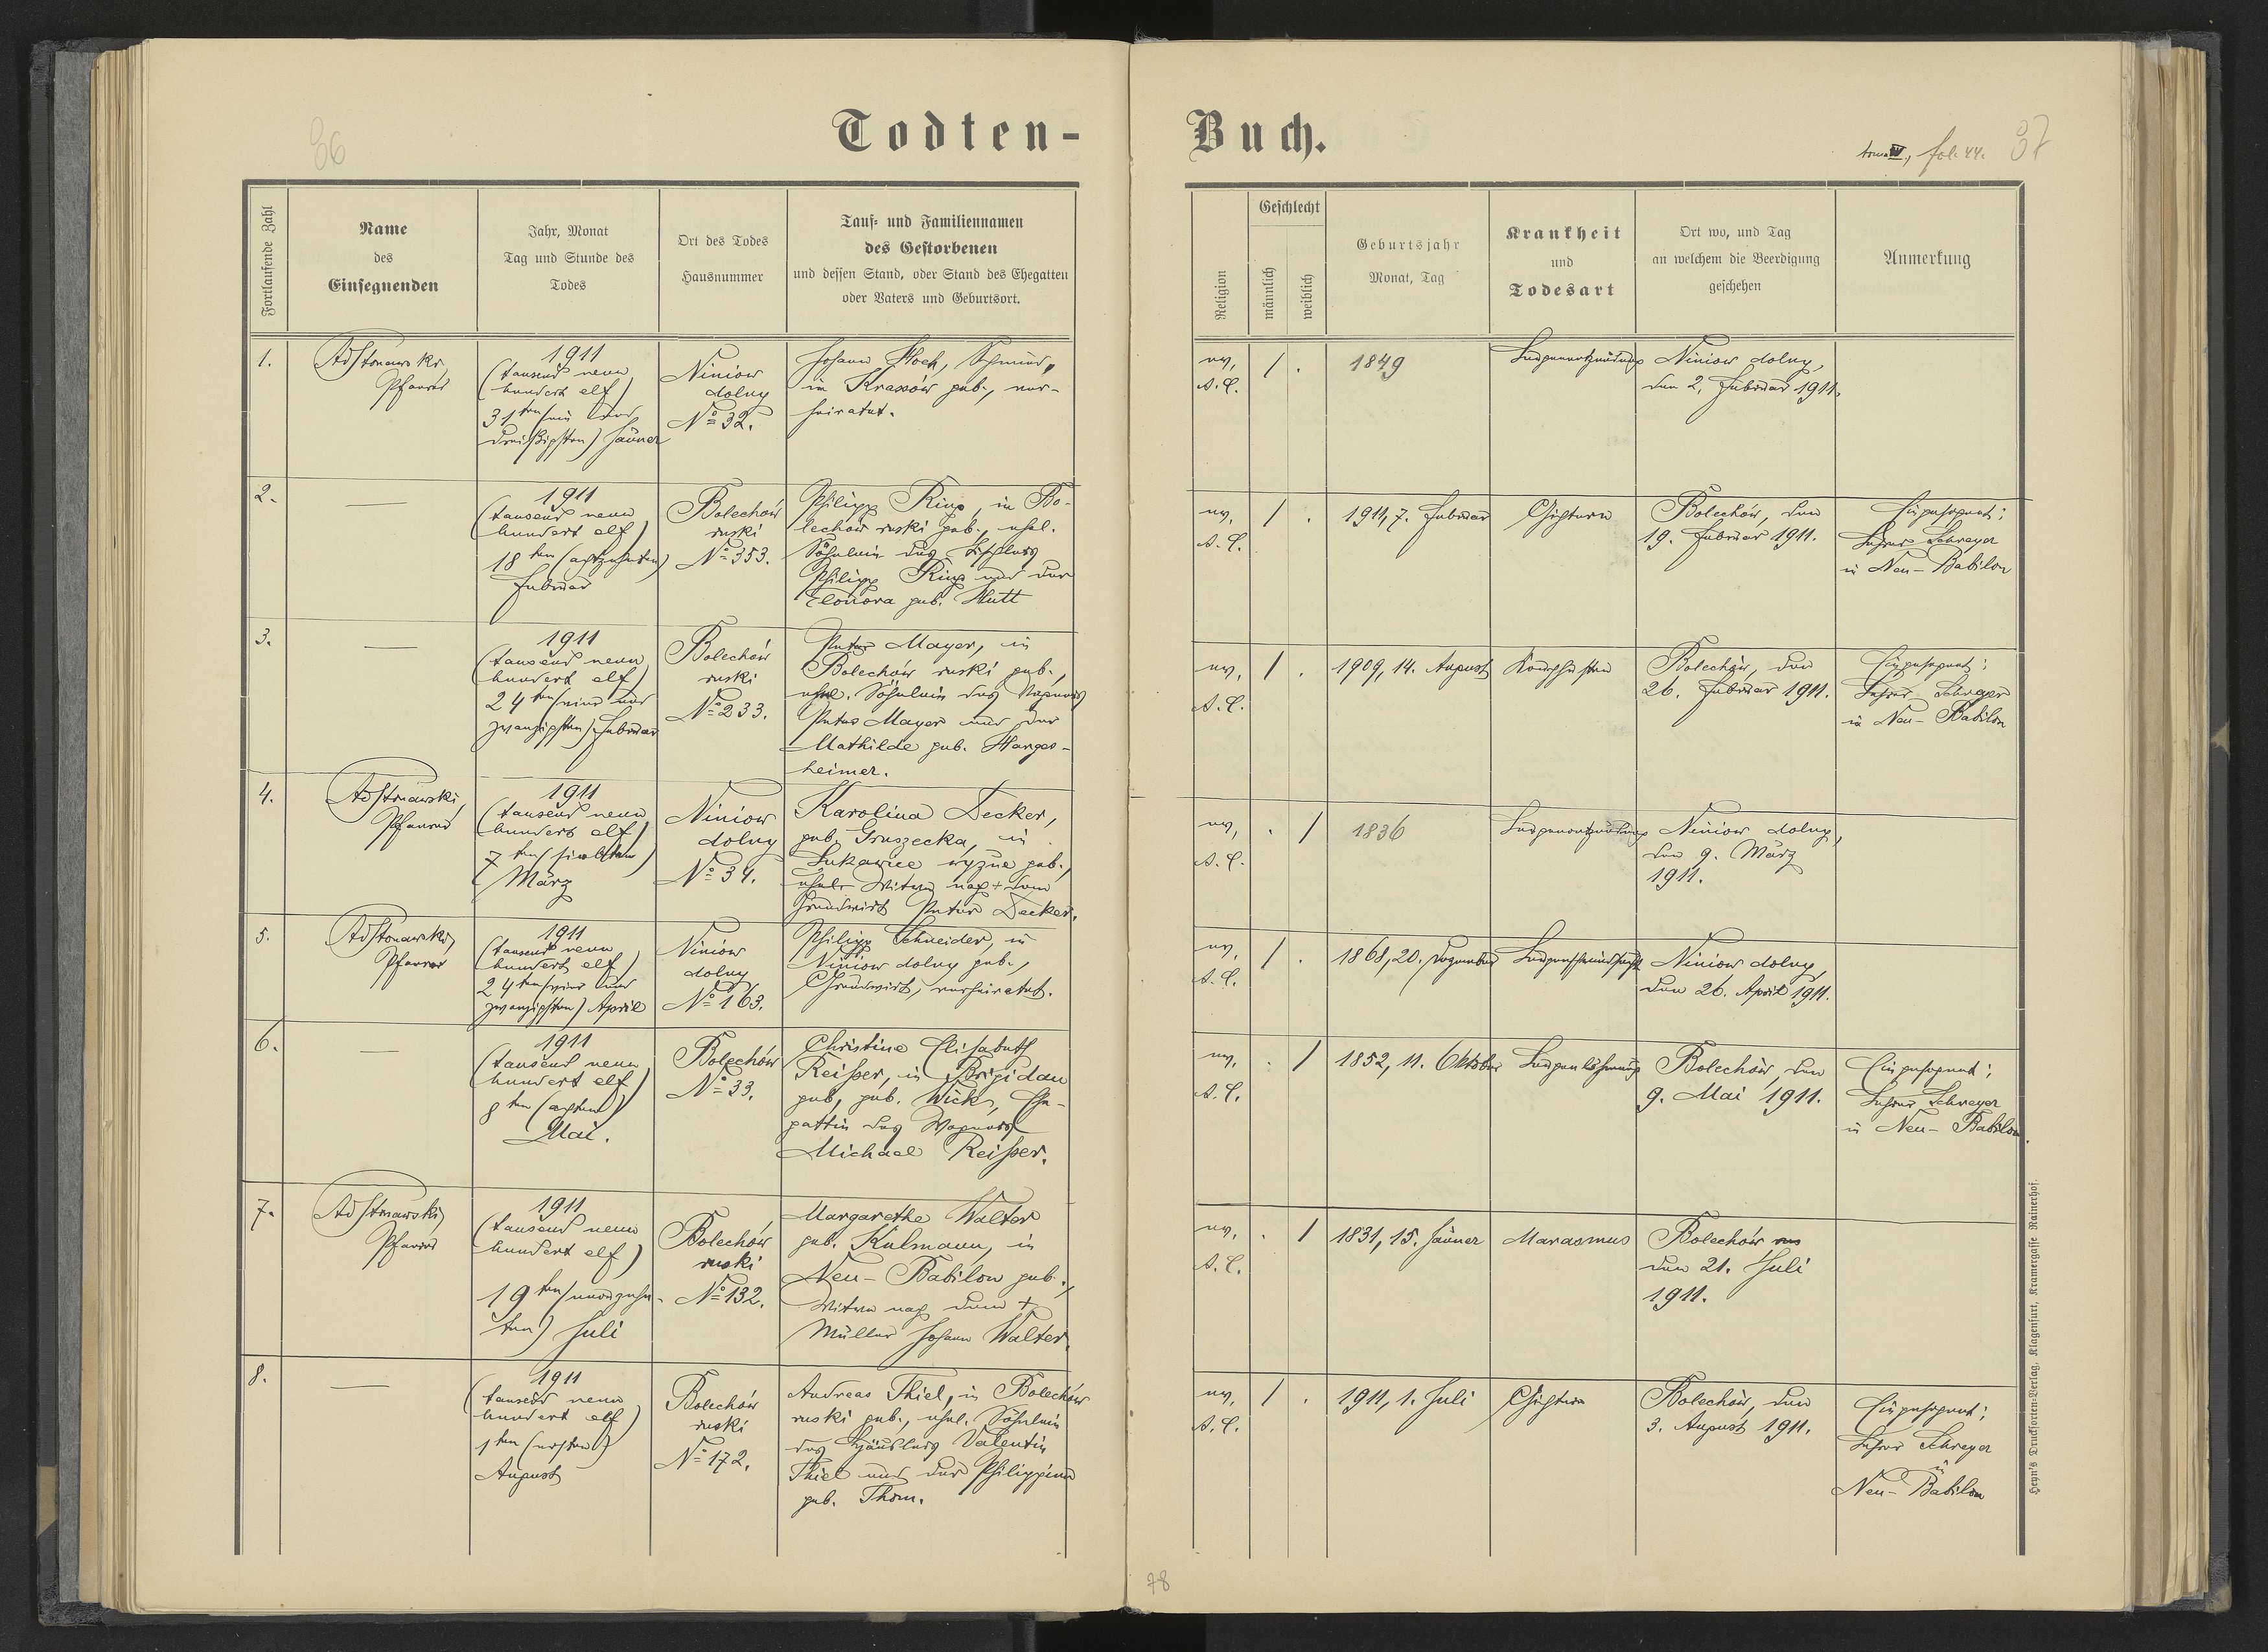 36
Todten-
Fortlaufende Zahl
Name
des
Einsegnenden
Jahr, Monat
Tag und Stunde des
Todes
Ort des Todes
Hausnummer
Tauf- und Familiennamen
des Gestorbenen
und dessen Stand, oder Stand des Ehegatten
oder Vaters und Geburtsort.
1.
Pfarrer
1911
(tausend neun
hundert elf)
31ten (ein und
dreißigsten) Jänner
Niniow
dolny
No 32.
Johann Hoch, Schmied,
in Krasów geb., ver-
heiratet.
2.
—
1911
(tausend neun
hundert elf)
18ten (achtzehnten)
Februar
Bolechów
ruski
No 353.
Philipp Ring, in Bo-
lechów ruski geb., ehel.
Söhnlein des Tischlers
Philipp Ring und der
Eleonora geb. Hutt
3.
—
1911
(tausend neun
hundert elf)
24ten (vier und
zwanzigsten) Februar
Bolechów
ruski
No 233.
Peter Mayer, in
Bolechów ruski geb.,
ehel. Söhnlein des Wagners
Peter Mayer und der
Mathilde geb. Harges-
heimer.
4.
Pfarrer
1911
(tausend neun
hundert elf)
7ten (siebten)
März
Niniow
dolny
No 34.
Karolina Decker,
geb. Gruszecka, in
Łukawice wyżne geb.,
ehel. Witwe nach + dem
Grundwirt Peter Decker.
5.
Pfarrer
1911
(tausend neun
hundert elf)
24ten (vier und
zwanzigsten) April
Niniow
dolny
No 163.
Philipp Schneider, in
Niniow dolny geb.,
Grundwirt, verheiratet.
6.
—
1911
(tausend neun
hundert elf)
8ten (achten)
Mai.
Bolechów
No 33.
Christine Elisabeth
Reisser, in Brigidau
geb., geb. Wick, Ehe-
gattin des Wagners
Michael Reisser.
7.
Pfarrer
1911
(tausend neun
hundert elf)
19ten (neunzehn-
ten) Juli
Bolechów
ruski
No 132.
Margarethe Walter
geb. Kulmann, in
Neu-Babilon geb.,
Witwe nach dem +
Müller Johann Walter.
8.
—
1911
(tausend neun
hundert elf)
1ten (ersten)
August
Bolechów
ruski
No 172.
Andreas Thiel, in Bolechów
ruski geb., ehel. Söhnlein
des Häuslers Valentin
Thiel und der Philippina
geb. Thom.
Buch.
fol. 44.
37
Religion
Geschlecht
männlich
weiblich
Geburtsjahr
Monat, Tag
Krankheit
und
Todesart
Ort wo, und Tag
an welchem die Beerdigung
geschehen
Anmerkung
ev.
A.C.
/ .
1849
Lungenentzündung
Niniow dolny,
den 2. Februar 1911.
ev.
A.C.
/ .
1911, 7. Februar
Gichtern
Bolechów, den
19. Februar 1911.
Eingesegnet:
Lehrer Schreyer
in Neu-Babilon
ev.
A.C.
/ .
1909, 14. August
Keuchhusten
Bolechów, den
26. Februar 1911.
Eingesegnet:
Lehrer Schreyer
in Neu-Babilon
ev.
A.C.
. /
1836
Lungenentzündung
Niniow dolny,
den 9. März
1911.
ev.
A.C.
/ .
1868, 20. Dezember
Lungenschwindsucht
Niniow dolny,
den 26. April 1911.
ev.
A.C.
. /
1852, 11. Oktober
Lungenlähmung
Bolechów, den
9. Mai 1911.
Eingesegnet:
Lehrer Schreyer
in Neu-Babilon.
ev.
A.C.
. /
1831, 15. Jänner
Marasmus
Bolechów
den 21. Juli
1911.
ev.
A.C.
/ .
1911, 1. Juli
Gichtern
Bolechów, den
3. August 1911.
Eingesegnet:
Lehrer Schreyer
in
Neu-Babilon
Heyn's Drucksorten-Verlag, Klagenfurt, Kramergasse Rainerhof.
78